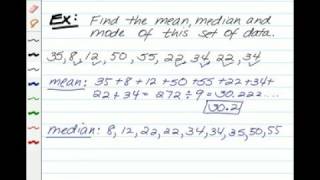 Ex: Find the mean, median and
mode of this set of data.
35, 8, 12, 50, 55, 22, 34, 22, 34
mean: 35+8+12+50+55+22+34+
22+34 = 272÷9 = 30.222....
30.2
median: 8, 12, 22, 22, 34, 34, 35, 50, 55